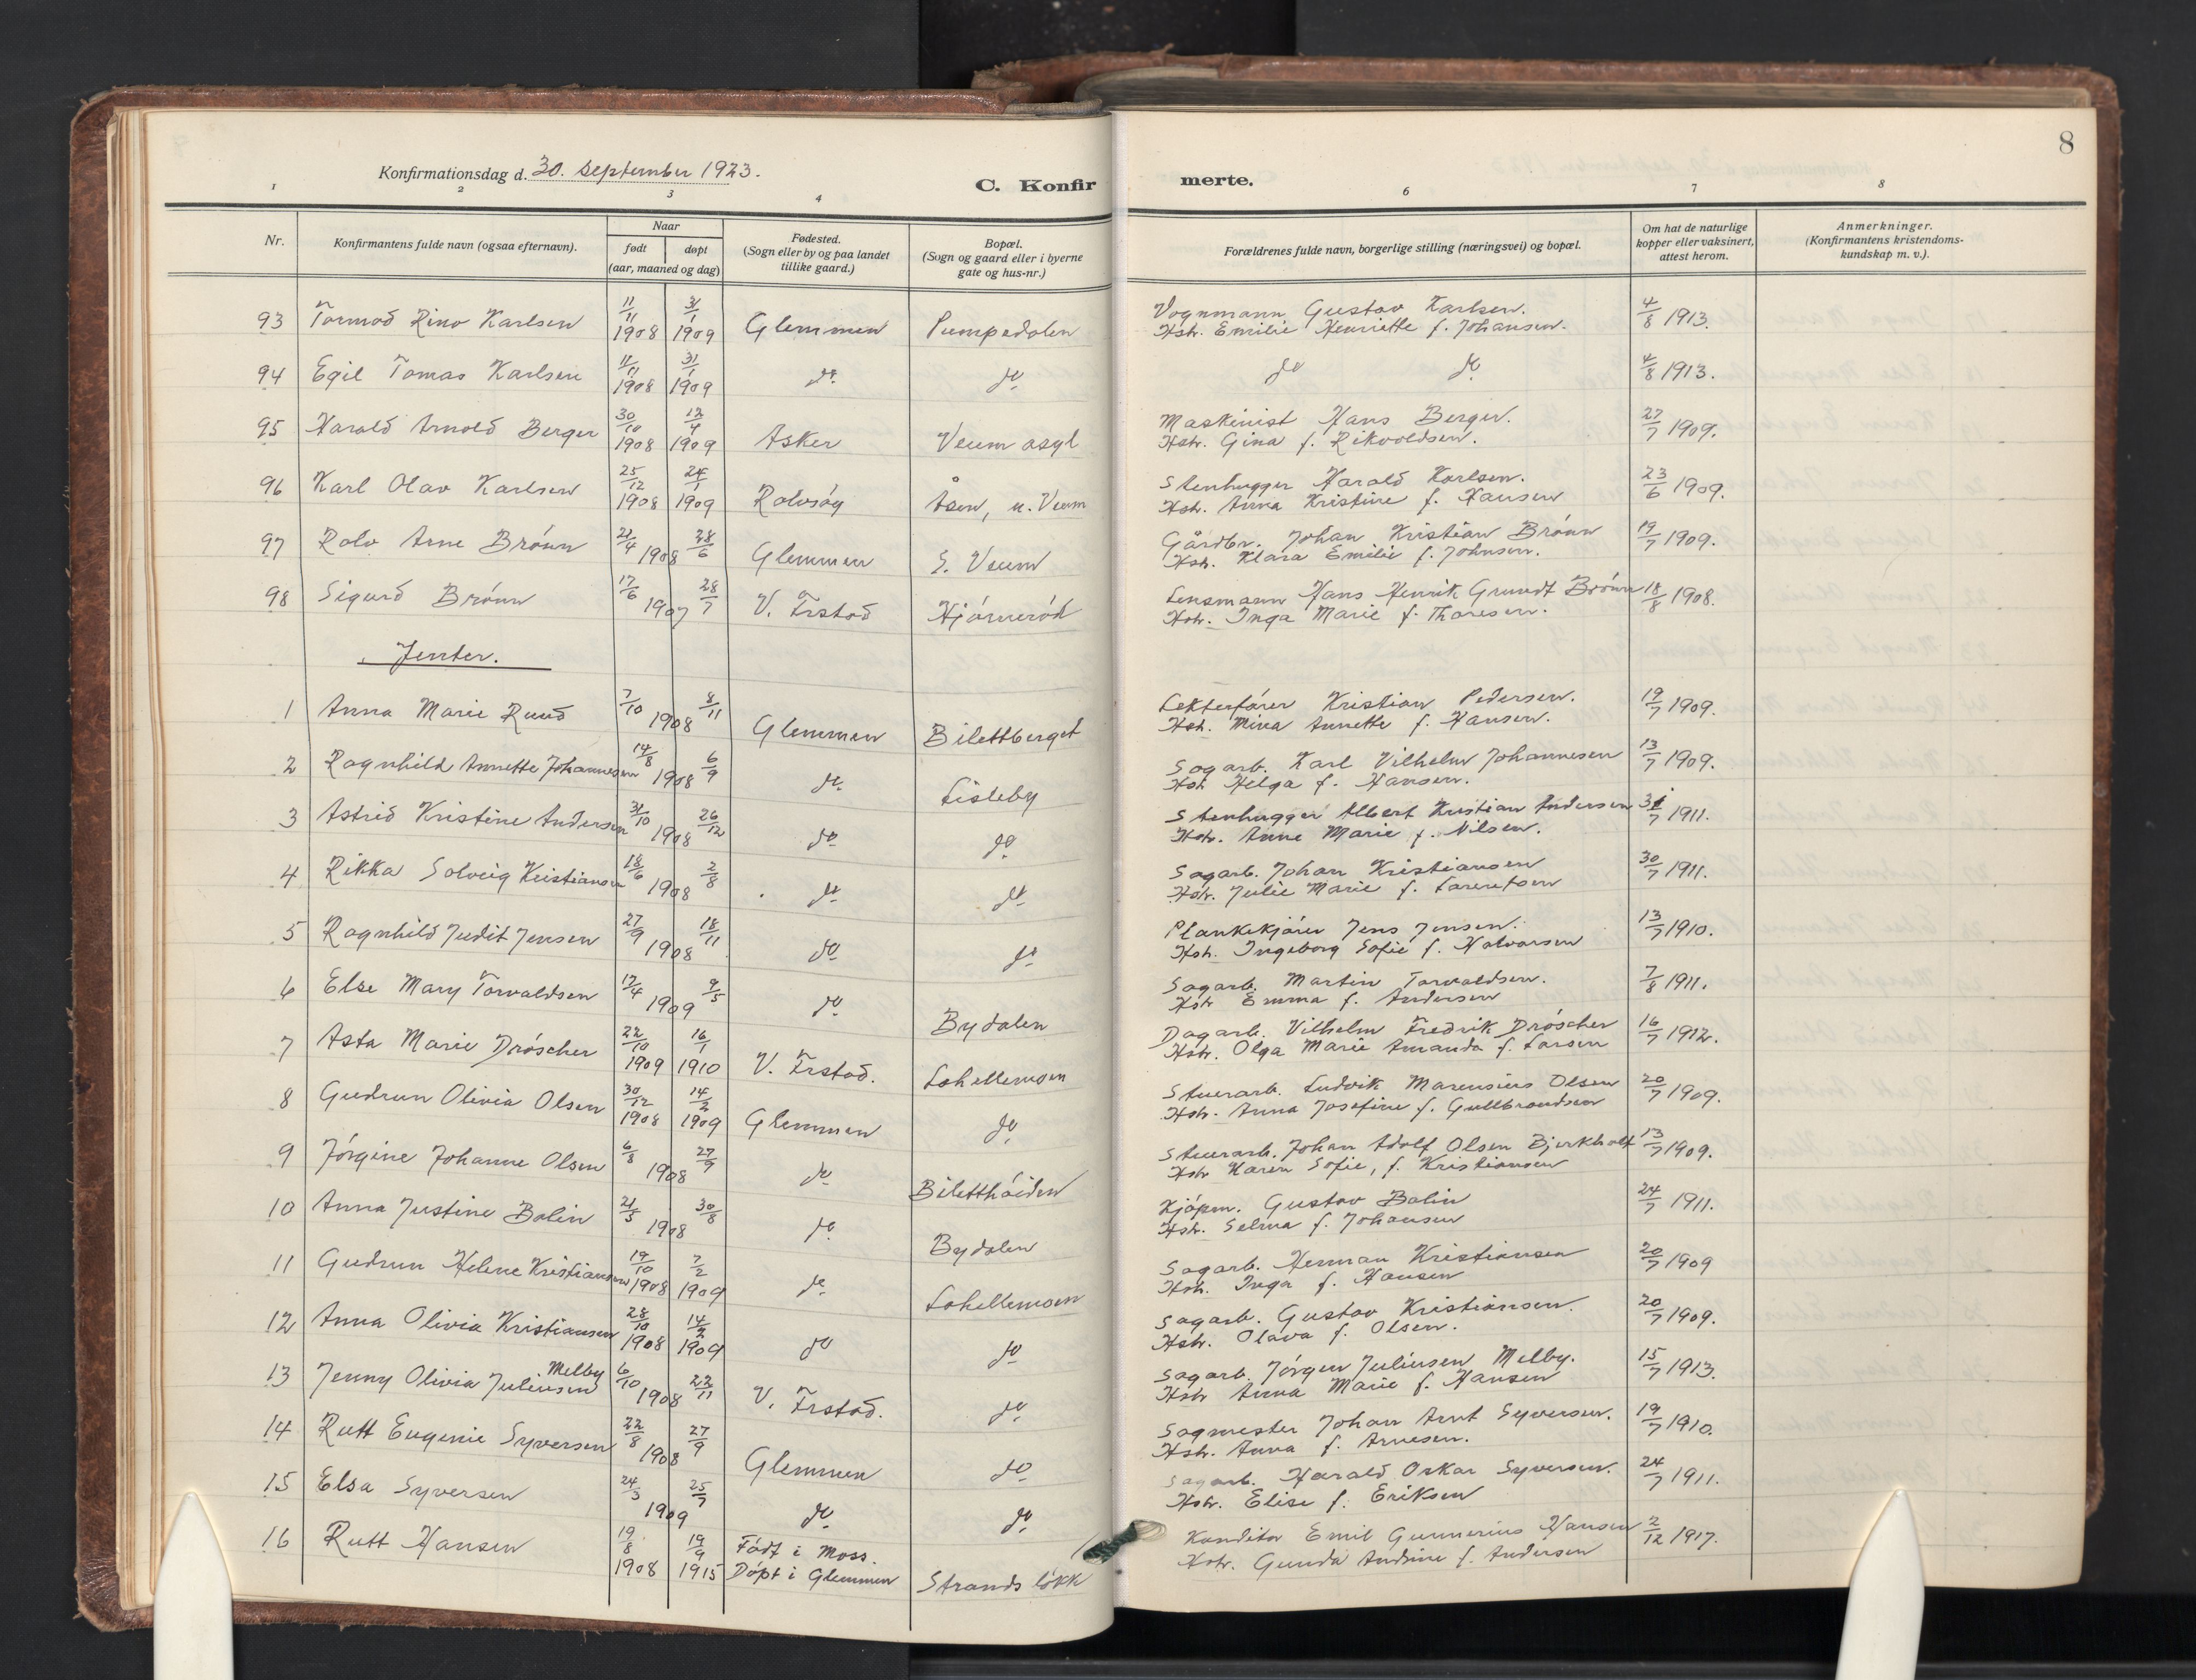 8
Konfirmationsdag d. 30. september 1923.
C. Konfirmerte.
1 2 3 4 6 7 8
Nr. Konfirmantens fulde navn (ogsaa efternavn). Naar født døpt (aar, maaned og dag) Fødested. (Sogn eller by og paa landet tillike gaard.) Bopæl. (Sogn og gaard eller i byerne gate og hus-nr.) Forældrenes fulde navn, borgerlige stilling (næringsvei) og bopæl. Om hat de naturlige kopper eller vaksinert, attest herom. Anmerkninger. (Konfirmantens kristendoms-kundskap m. v.).
93 Tormod Rino Karlsen 11/11 1908 31/1 1909 Glemmen Pumpedalen Vognmann Gustav Karlsen. 4/8 1913.
Hstr. Emilie Henriette f. Johansen.
94 Egil Tomas Karlsen 11/11 1908 31/1 1909 do. do do do. 4/8 1913.
95 Harald Arnold Berger 30/10 1908 12/4 1909 Asker Veum asyl Maskinist Hans Berger. 27/7 1909.
Hstr. Gina f. Rikvoldsen.
96 Karl Olav Karlsen 25/12 1908 24/1 1909 Rolvsøy Åsen, u. Veum Stenhugger Harald Karlsen. 23/6 1909.
Hstr. Anna Kristine f. Hansen
97 Rolv Arne Brónn 21/4 1908 28/6 Glemmen S. Veum Gårdbr. Johan Kristian Brónn 19/7 1909.
Hstr. Klara Emilie f. Johnsen.
98 Sigurd Brónn 17/6 1907 28/7 V. Frstad Hjórneród Lensmann Hans Henrik Grundt Brónn 18/8 1908.
Hstr. Inga Marie f. Thoresen.
Jenter.
1 Anna Marie Ruud 7/10 1908 8/11 Glemmen Bilettberget Lekterfórer Kristian Pedersen. 19/7 1909.
Hstr. Mina Annette f. Hansen.
2 Ragnhild Annette Johannesen 14/8 1908 6/9 do. Lisleby Sagarb. Karl Vilhelm Johannesen 13/7 1909.
Hstr Helga f. Hansen.
3 Astrid Kristine Andersen 31/10 1908 26/12 do do. Stenhugger Albert Kristian Andersen 31/7 1911.
Hstr. Anne Marie f. Nilsen.
4 Rikka Solveig Kristiansen 18/6 1908 2/8 do do Sagarb. Johan Kristiansen 30/7 1911.
Hstr. Julie Marie f. Larentsen
5 Ragnhild Judit Jensen 27/9 1908 18/11 do do Plankekjórer Jens Jensen. 13/7 1910.
Hstr. Ingeborg Sofie f. Halvorsen
6 Else Mary Torvaldsen 17/4 1909 9/5 do Bydalen Sagarb. Martin Torvaldsen. 7/8 1911.
Hstr Emma f. Andersen
7 Asta Marie Dróscher 22/10 1909 16/1 1910 V. Frstad. Lahellemoen Dagarb. Vilhelm Fredrik Dróscher 16/7 1912.
Hstr. Olga Marie Amanda f. Larsen
8 Gudrun Olivia Olsen 30/12 1908 14/2 1909 Glemmen do. Stuerarb. Ludvik Marensius Olsen 20/7 1909.
Hstr. Anna Josefine f. Gullbrandsen
9 Jórgine Johanne Olsen 6/8 1908 27/9 do Biletthóiden Stuerarb. Johan Adolf Olsen Bjerkholt 13/7 1909.
Hstr Karen Sofie, f. Kristiansen
10 Anna Justine Bolin 21/5 1908 30/8 do Bydalen Kjópm. Gustav Bolin 24/7 1911.
Hstr. Selma f. Johansen
11 Gudrun Helene Kristiansen 19/10 1908 7/2 1909 do Lahellemoen Sagarb. Herman Kristiansen 20/7 1909
Hstr. Inga f. Hansen
12 Anna Olivia Kristiansen 28/10 1908 14/2 1909 do do Sagarb. Gustav Kristiansen. 20/7 1909.
Hstr. Olava f. Olsen.
13 Jenny Olivia Juliusen Melby 6/10 1908 22/11 V. Frstad. do Sagarb. Jórgen Juliusen Melby. 15/7 1913.
Hstr Anna Marie f. Hansen
14 Rutt Eugenie Syversen 22/8 1908 27/9 Glemmen do Sagmester Johan Arnt Syversen. 19/7 1910.
Hstr. Anna f. Arnesen.
15 Elsa Syversen 24/3 1909 25/7 do do. Sagarb. Harald Oskar Syversen. 24/7 1911.
Hstr. Elise f. Eriksen
16 Rutt Hansen 19/8 1908 19/9 1915 Fódt i Moss. Dópt i Glemmen Strands lókk Konditor Emil Gunnerius Hansen 2/12 1917.
Hstr. Gunda Andrine f. Andersen